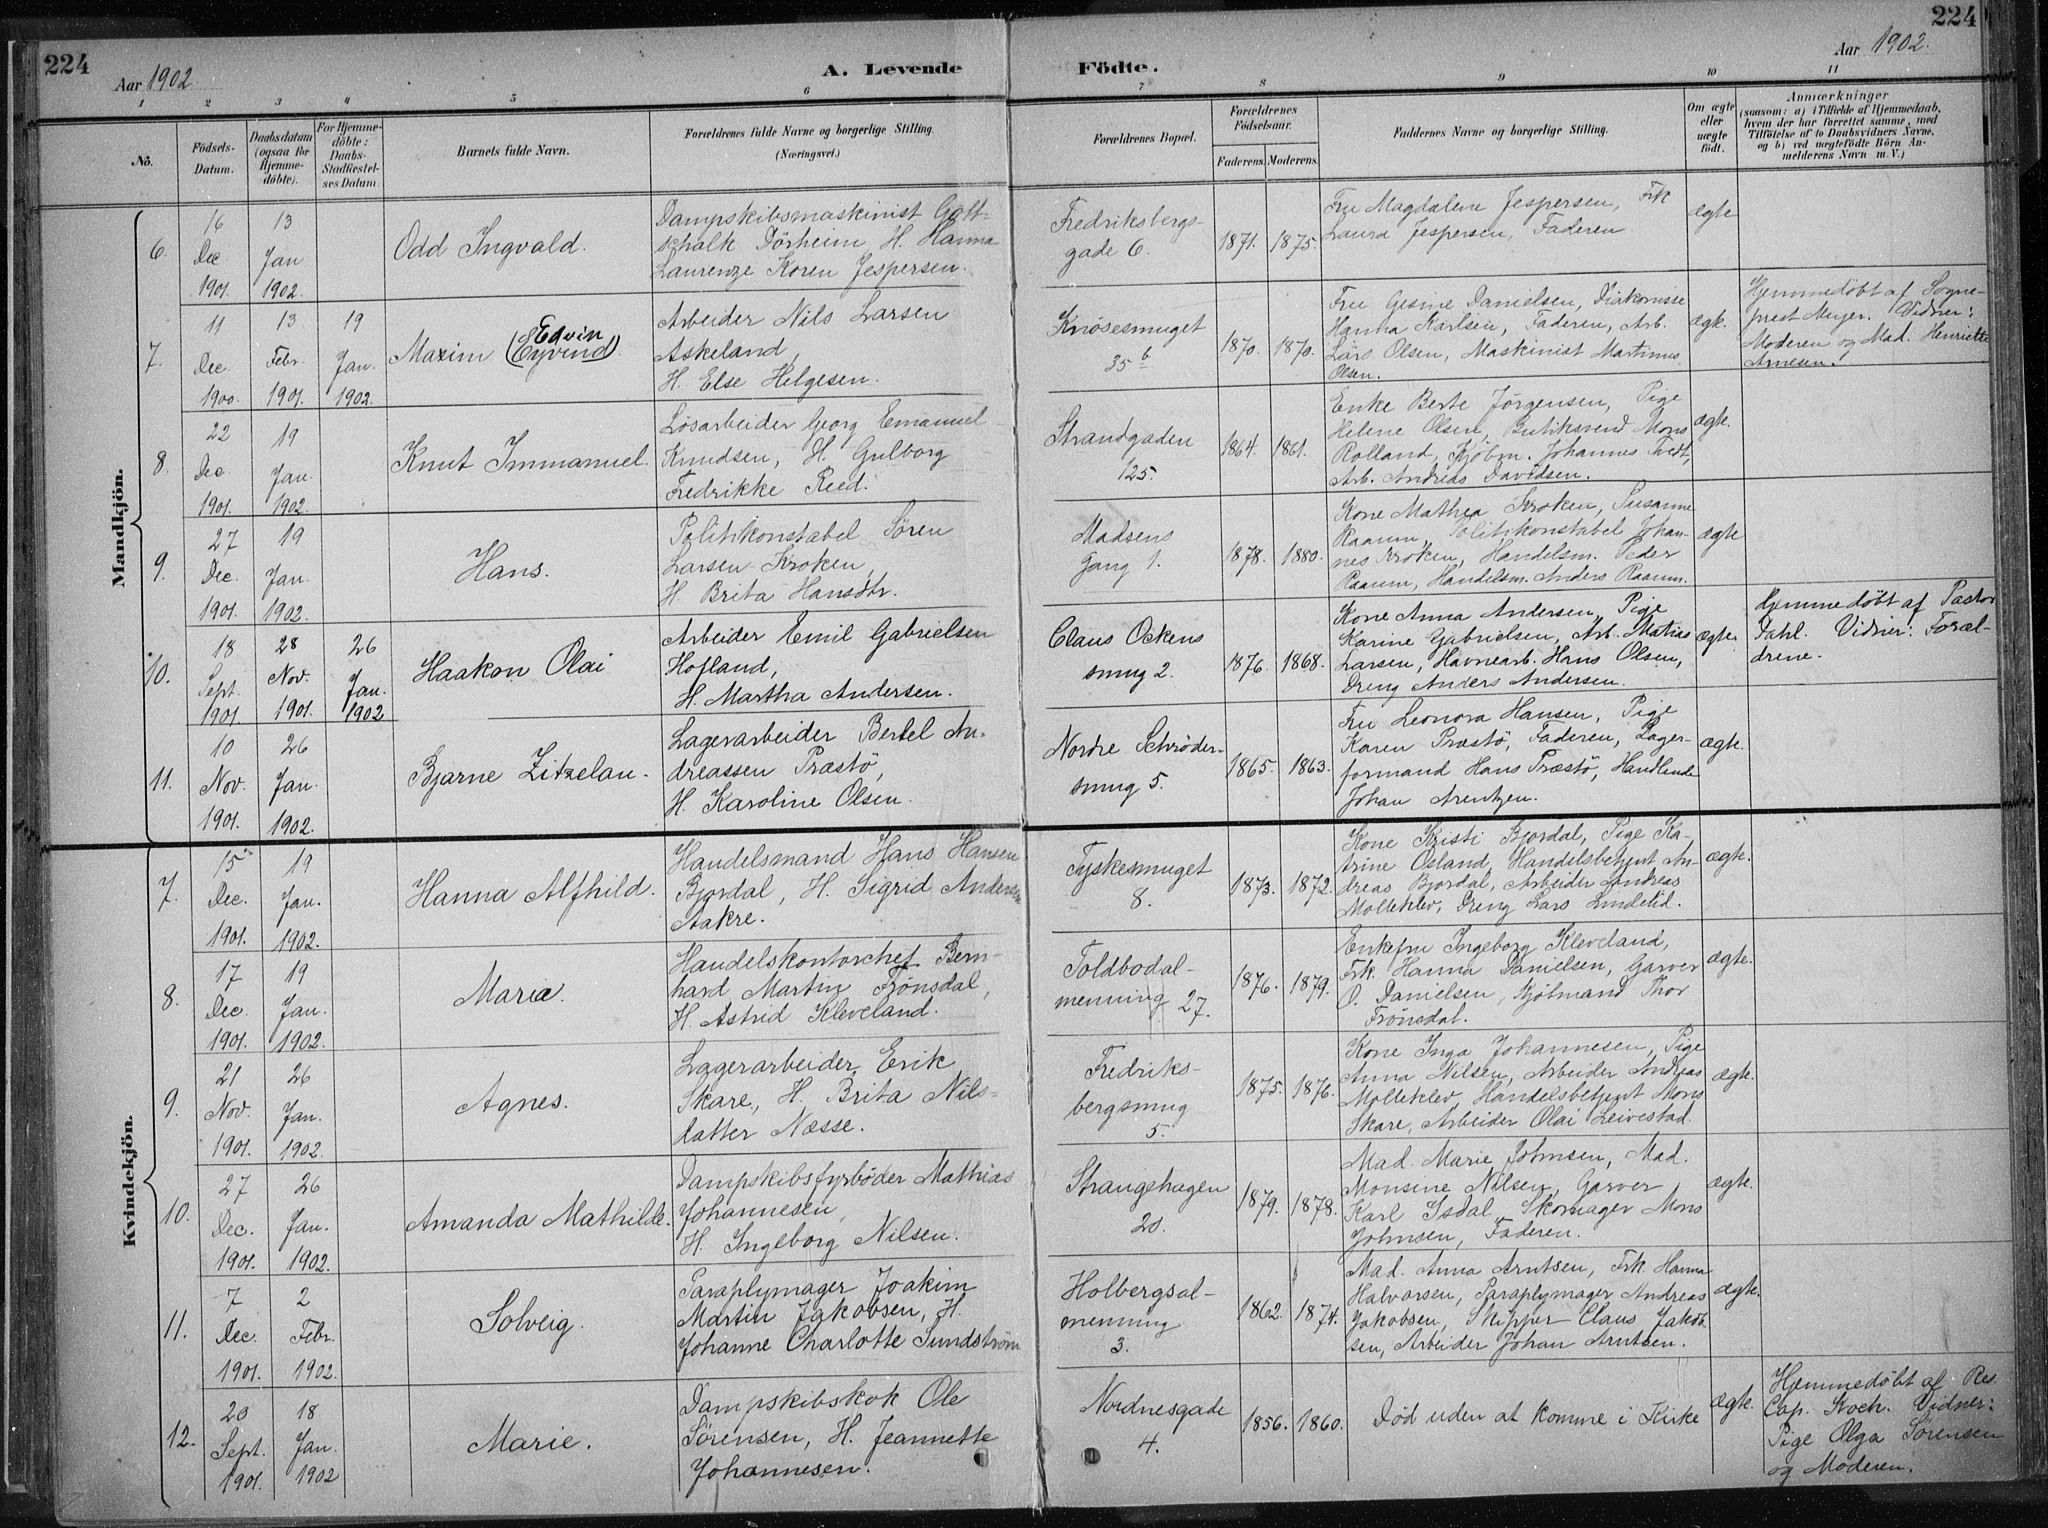 224
224
Aar 1902.
A. Levende
Födte.
Aar 1902.
1 2 3 4 5 6 7 8 9 10 11
No.
Födsels-
Datum.
Daabsdatum
(ogsaa for
Hjemme-
döbte).
For Hjemme-
döbte:
Daabs-
Stadfæstel-
ses Datum.
Barnets fulde Navn.
Forældrenes fulde Navne og borgerlige Stilling.
(Næringsvei.)
Forældrenes Bopæl.
Forældrenes
Födselsaar.
Faderens. Moderens.
Faddernes Navne og borgerlige Stilling.
Om ægte
eller
uægte
födt.
Anmærkninger
(saasom: a) i Tilfælde af Hjemmedaab,
hvem der har forrettet samme, med
Tilföielse af to Daabsvidners Navne,
og b) ved uægtefödte Börn An-
melderens Navn m. V.)
Mandkjön.
6.
16
Dec.
1901.
13
Jan
1902.
Odd Ingvald.
Dampskibsmaskinist Gott-
schalk Dörheim, H. Hanna
Laurenze Koren Jespersen.
Fredriksbergs-
gade 6.
1871. 1875.
Fru Magdalene Jespersen, Frk
Laura Jespersen, Faderen
ægte
7.
11
Dec.
1900.
13
Febr.
1901.
19
Jan.
1902.
Edvin
Maxim (Eyvind).
Arbeider Nils Larsen
Askeland,
H. Else Helgesen.
Knösesmuget
35 b
1870. 1870.
Fru Gesine Danielsen, Diakonisse
Hanna Karlsen, Faderen, Arb.
Lars Olsen, Maskinist Martinus
Olsen.
ægte.
Hjemmedöbt af Sogne-
prest Meyer. Vidner:
Moderen og Mad. Henriette
Arnesen.
8.
22
Dec
1901.
19
Jan.
1902.
Knut Immanuel.
Løsarbeider Georg Emanuel
Knudsen, H. Gulborg
Fredrikke Reed.
Strandgaden
125.
1864. 1861.
Enke Berte Jörgensen, Pige
Helene Olsen, Butiksvend Mons
Rolland, Kjöbm. Johannes Tvedt,
Arb. Andreas Davidsen.
ægte.
9.
27
Dec.
1901.
19
Jan.
1902.
Hans.
Politikonstabel Sören
Larsen Kroken,
H. Brita Hansdtr.
Madsens
Gang 1.
1878. 1880.
Kone Mathea Kroken, Susanne
Raaum, Politikonstabel Johan-
nes Kroken, Handelsm. Peder
Raaum, Handelsm. Anders Raaum.
ægte
10.
18
Sept.
1901.
28
Nov.
1901.
26
Jan.
1902
Haakon Olai
Arbeider Emil Gabrielsen
Hofland,
H. Martha Andersen.
Claus Ockens
smug 2.
1876. 1868.
Kone Anna Andersen, Pige
Karine Gabrielsen, Arb. Matias
Larsen, Havnearb. Hans Olsen,
Dreng Anders Andersen.
ægte.
Hjemmedöbt af Pastor
Dahl. Vidner: Foræl-
drene.
11.
10
Nov.
1901.
26
Jan.
1902.
Bjarne Zitzelan.
Lagerarbeider Bertel An-
dreassen Præstö,
H. Karoline Olsen.
Nordre Schrøder-
smug 5.
1865. 1863.
Fru Leonora Hansen, Pige
Karen Præstö, Faderen, Lager-
formand Hans Præstö, Handlende
Johan Arentzen.
ægte.
Kvindekjön.
7.
15
Dec.
1901.
19
Jan.
1902.
Hanna Alfhild.
Handelsmand Hans Hansen
Bjordal, H. Sigrid Andersen
Aakre.
Tyskesmuget
8.
1873. 1872.
Kone Kristi Bjordal, Pige Ka-
trine Osland, Handelsbetjent An-
dreas Bjordal, Arbeider Andreas
Molleklev, Dreng Lars Lindetid.
ægte.
8.
17
Dec.
1901.
19
Jan.
1902.
Marie.
Handelskontorchef Bern-
hard Martin Frönsdal,
H. Astrid Kleveland.
Toldbodal-
menning 27.
1876. 1879.
Enkefru Ingeborg Kleveland,
Frk. Hanna Danielsen, Garver
O. Danielsen, Kjöbmand Thor
Frönsdal.
ægte.
9.
21
Nov.
1901.
26
Jan.
1902.
Agnes.
Lagerarbeider Erik
Skare, H. Brita Nils-
datter Næsse.
Fredriks-
bergsmug
5.
1875. 1876.
Kone Inga Johannesen, Pige
Anna Nilsen, Arbeider Andreas
Molleklev, Handelsbetjent Mons
Skare, Arbeider Olai Leivestad.
ægte.
10.
27
Dec.
1901.
26
Jan.
1902.
Amanda Mathilde.
Dampskibsfyrböder Mathias
Johannesen,
H. Ingeborg Nilsen.
Strangehagen
20.
1879. 1878.
Mad. Marie Johnsen, Mad.
Monsine Nilsen, Garver
Karl Isdal, Skomager Mons
Johnsen, Faderen.
ægte.
11.
7
Dec.
1901.
2
Febr.
1902.
Solveig.
Paraplymager Joakim
Martin Jakobsen, H.
Johanne Charlotte Sundström
Holbergsal-
menning
3.
1862. 1874.
Mad. Anna Arntsen, Frk. Hanna
Halvorsen, Paraplymager Andreas
Jakobsen, Skipper Claus Jakob-
sen, Arbeider Johan Arntsen.
ægte.
12.
20
Sept.
1901.
18
Jan.
1902
Marie.
Dampskibskok Ole
Sörensen, H. Jeannette
Johannesen.
Nordnesgade
4.
1856. 1860.
Död uden at komme i Kirke
ægte.
Hjemmedöbt af Res.
Cap. Koch. Vidner:
Pige Olga Sörensen
og Moderen.